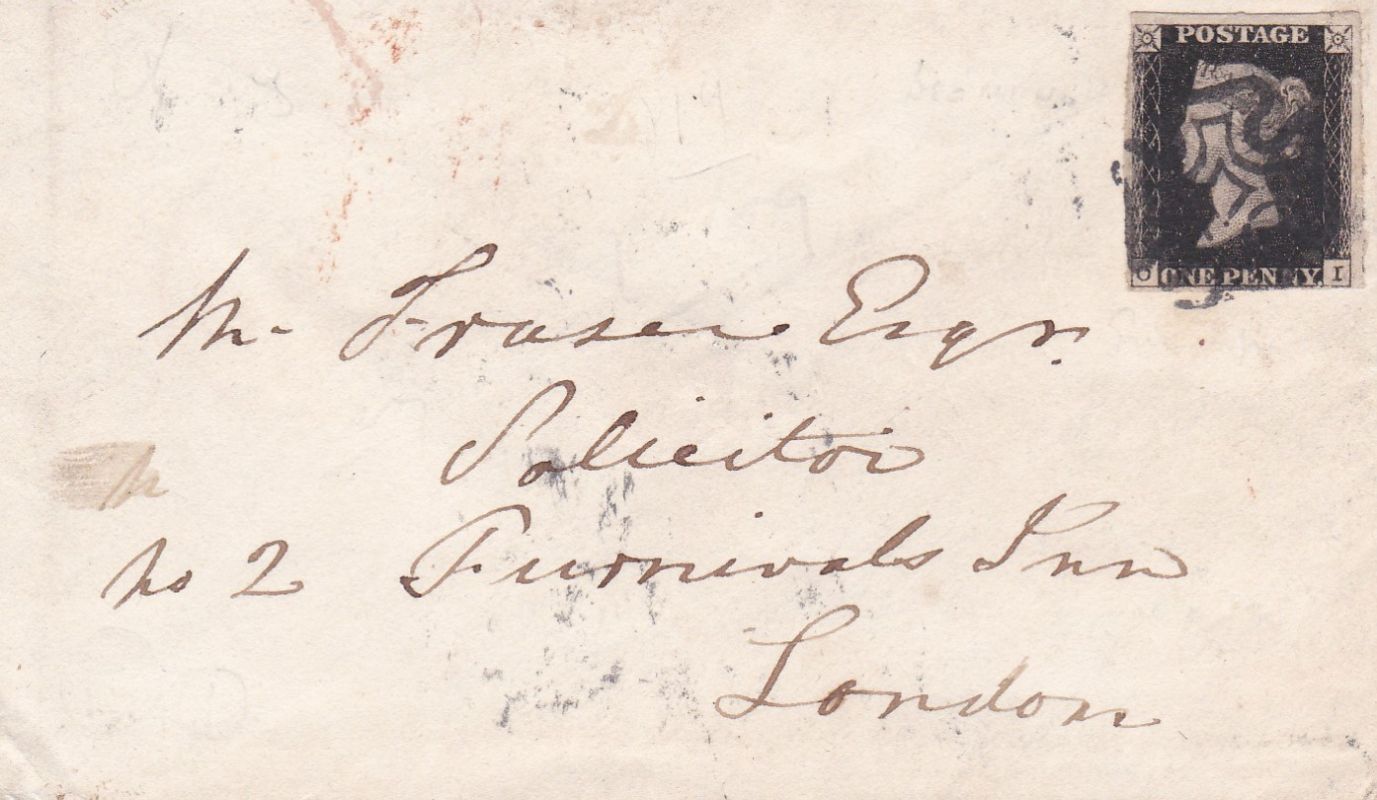 POSTAGE
O ONE PENNY. I
Mr Fraser Esqr.
Solicitor
No 2 Furnivals Inn
London